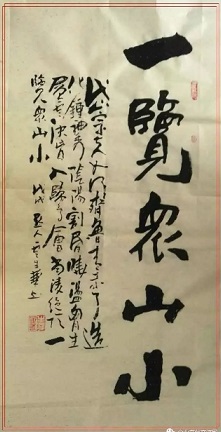 一覽衆山小
岱宗夫如何齊魯青未了造
化鍾神秀陰陽割昏曉盪胸生
層雲決眥入歸鳥會當凌絕頂一
覽衆山小 戊戌